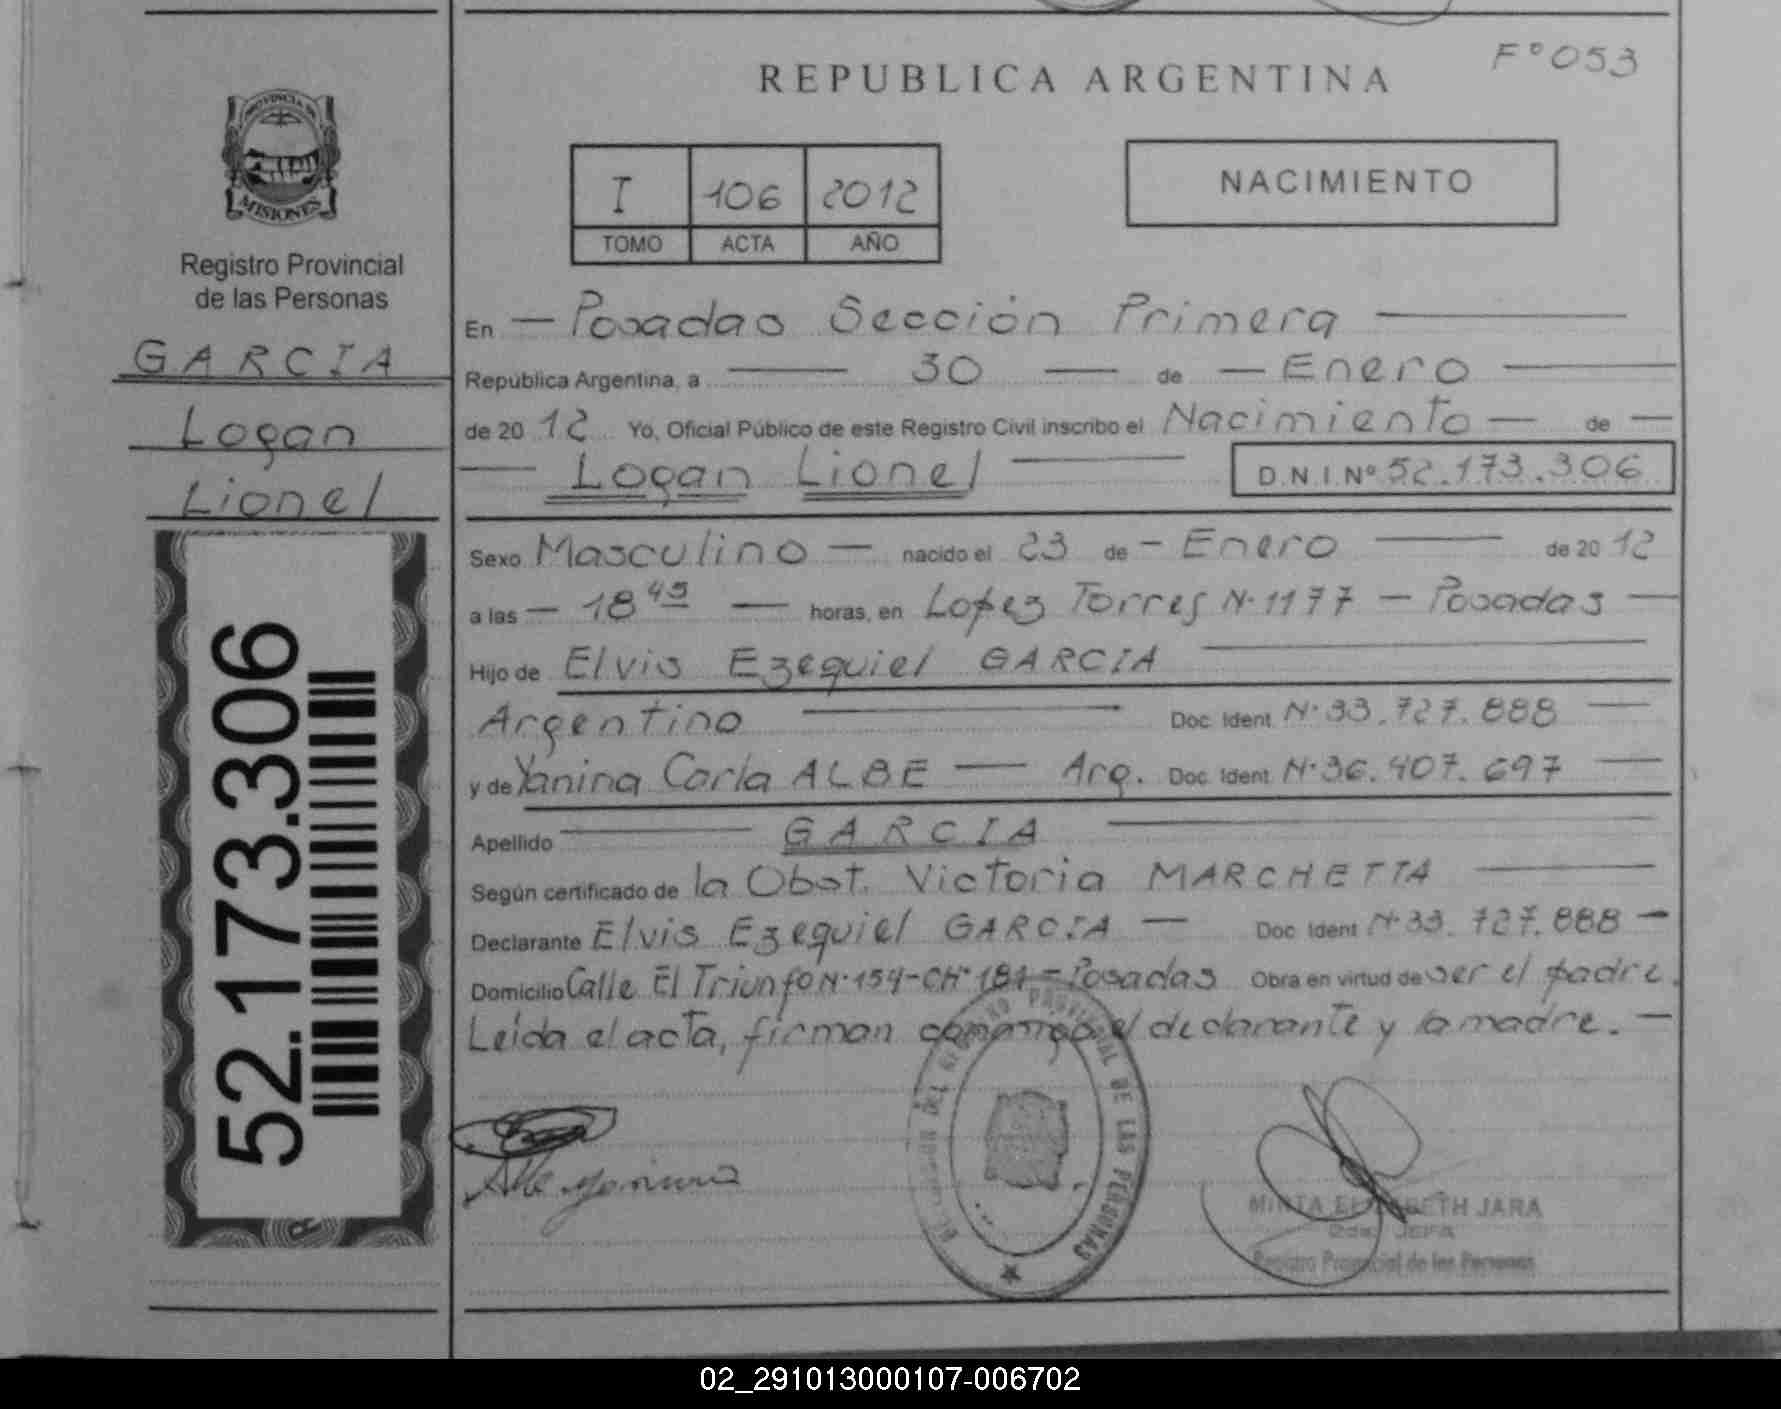 F° 053
REPUBLICA ARGENTINA
PROVINCIA DE
MISIONES
Registro Provincial
de las Personas
GARCIA
Logan
Lionel
52.173.306
I 106 2012
TOMO ACTA AÑO
NACIMIENTO
En — Posadas Sección Primera —
República Argentina, a — 30 — de — Enero —
de 20 12 Yo, Oficial Público de este Registro Civil inscribo el Nacimiento — de —
— Logan Lionel — D.N.I. Nº 52.173.306
Sexo Masculino — nacido el 23 de — Enero — de 20 12
a las — 18 45 — horas, en Lopez Torres N· 1177 — Posadas —
Hijo de Elvis Ezequiel GARCIA —
Argentino — Doc. Ident. N· 33.727.888 —
y de Yanina Carla ALBE — Arg. Doc. Ident. N· 36.407.697 —
Apellido — GARCIA —
Según certificado de la Obst. Victoria MARCHETTA —
Declarante Elvis Ezequiel GARCIA — Doc. Ident. N· 33.727.888 —
Domicilio Calle El Triunfo N· 154 - CH· 181 - Posadas Obra en virtud de ser el padre.
Leída el acta, firman conmigo el declarante y la madre. —
PROVINCIAL DE LAS PERSONAS
MIRTA ELIZABETH JARA
JEFA
Registro Provincial de las Personas
02_291013000107-006702